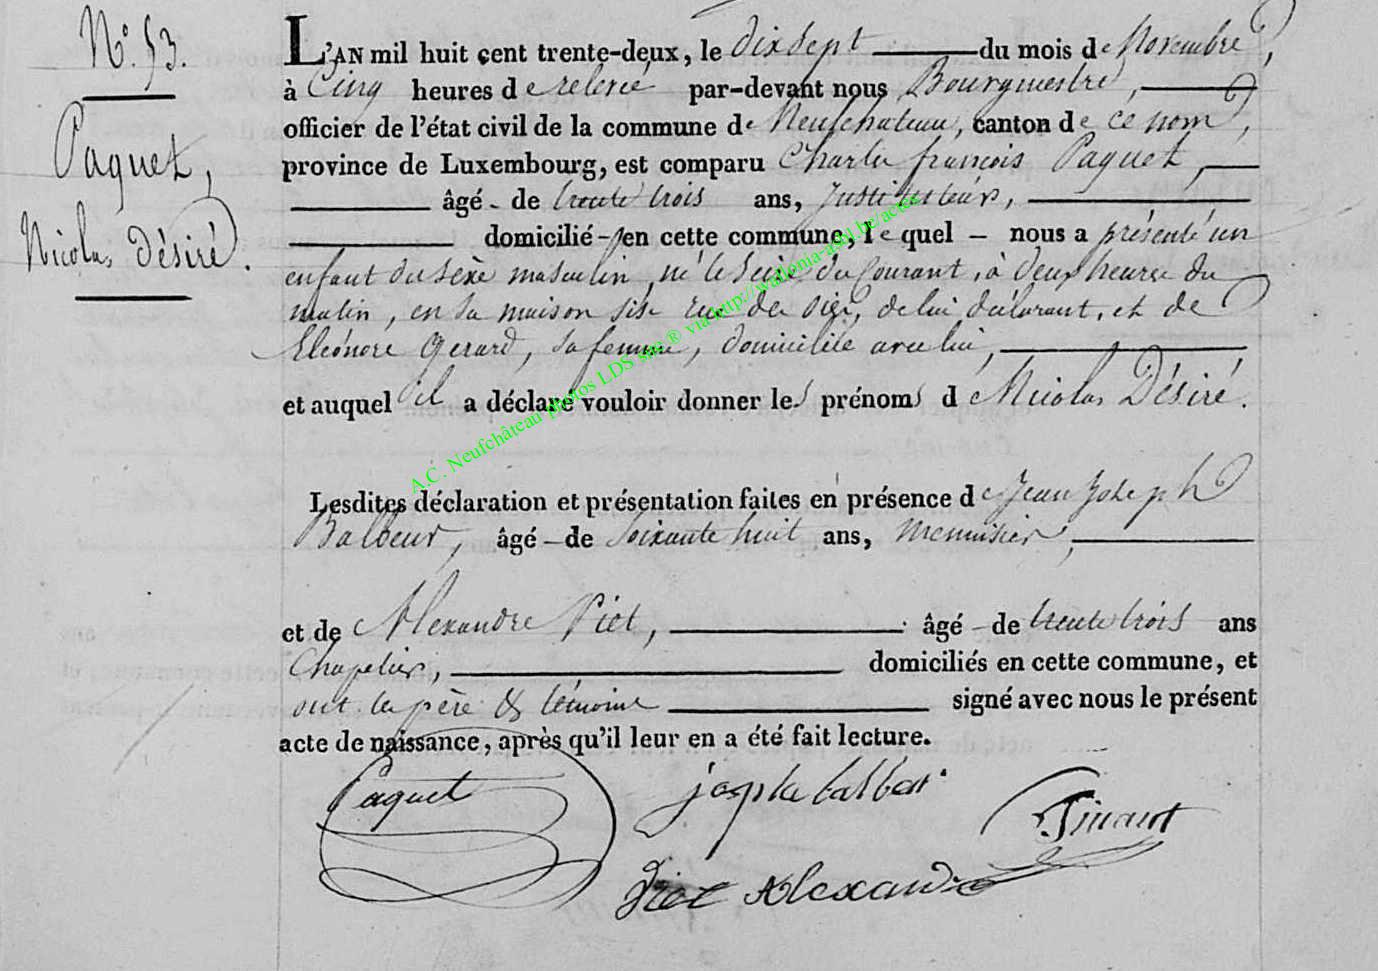 N.° 53.
Paquet,
Nicolas Désiré.
L'AN mil huit cent trente-deux, le dix sept du mois de Novembre,
à Cinq heures de relevée, par-devant nous Bourgmestre,
officier de l'état civil de la commune de Neufchateau, canton de ce nom,
province de Luxembourg, est comparu Charles françois Paquet,
âgé de trente trois ans, Instituteur,
domicilié en cette commune, le quel nous a présenté un
enfant du sexe masculin, né le Seize du Courant, à deux heures du
matin, en sa maison sise rue de de lui déclarant, et de
Eléonore Gerard, sa femme, domiciliée avec lui,
et auquel il a déclaré vouloir donner les prénoms d Nicolas Désiré.
Lesdites déclaration et présentation faites en présence de Jean Joseph
Balbeur, âgé de soixante huit ans, menuisier,
et de Alexandre Piet, âgé de trente trois ans
Chapelier, domiciliés en cette commune, et
ont les père & témoins signé avec nous le présent
acte de naissance, après qu'il leur en a été fait lecture.
Paquet
Piet Alexandre
A.C. Neufchâteau photos LDS sur ® via http://wallonia-asbl.be/actes